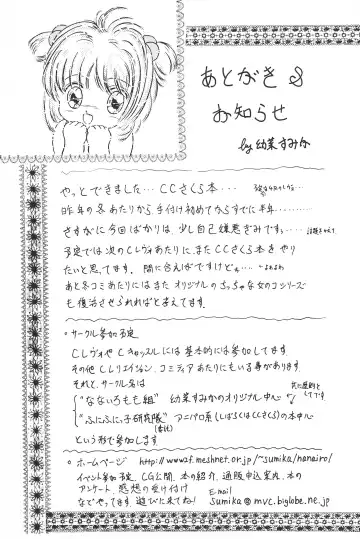 あとがき&
お知らせ
by 幼菜すみか
やっとできました…CCさくら本…
昨年の冬あたりから手付け初めてからすでに半年………
さすがに今回ばかりは、少し自己嫌悪ぎみですっ……
予定では次のCレヴォあたりに、またCCさくら本をやり
たいと思ってます。間に合えばですけどゎ…
あと冬コミあたりにはまたオリジナルのちっちゃな女のコシリーズ
も復活させられればと考えてます。
・サークル参加予定
CレヴォやCキャッスルには基本的には参加してます。
その他Cリエイション、コミティアあたりにもいる事があります。
それと、サークル名は
"なないろもも組" 幼菜すみかのオリジナル中心
"ふにふにっ子研究隊" アニパロ系(しばらくはCCさくら)の本中心
という形で参加します
・ホームページ http://www2f.meshnet.or.jp/~sumika/nanairo/
イベント参加予定、CG公開、本の紹介、通販申込案内、本の
アンケート、感想の受け付け
などやってます。遊びに来てね!
E-mail
sumika@mvc.biglobe.ne.jp